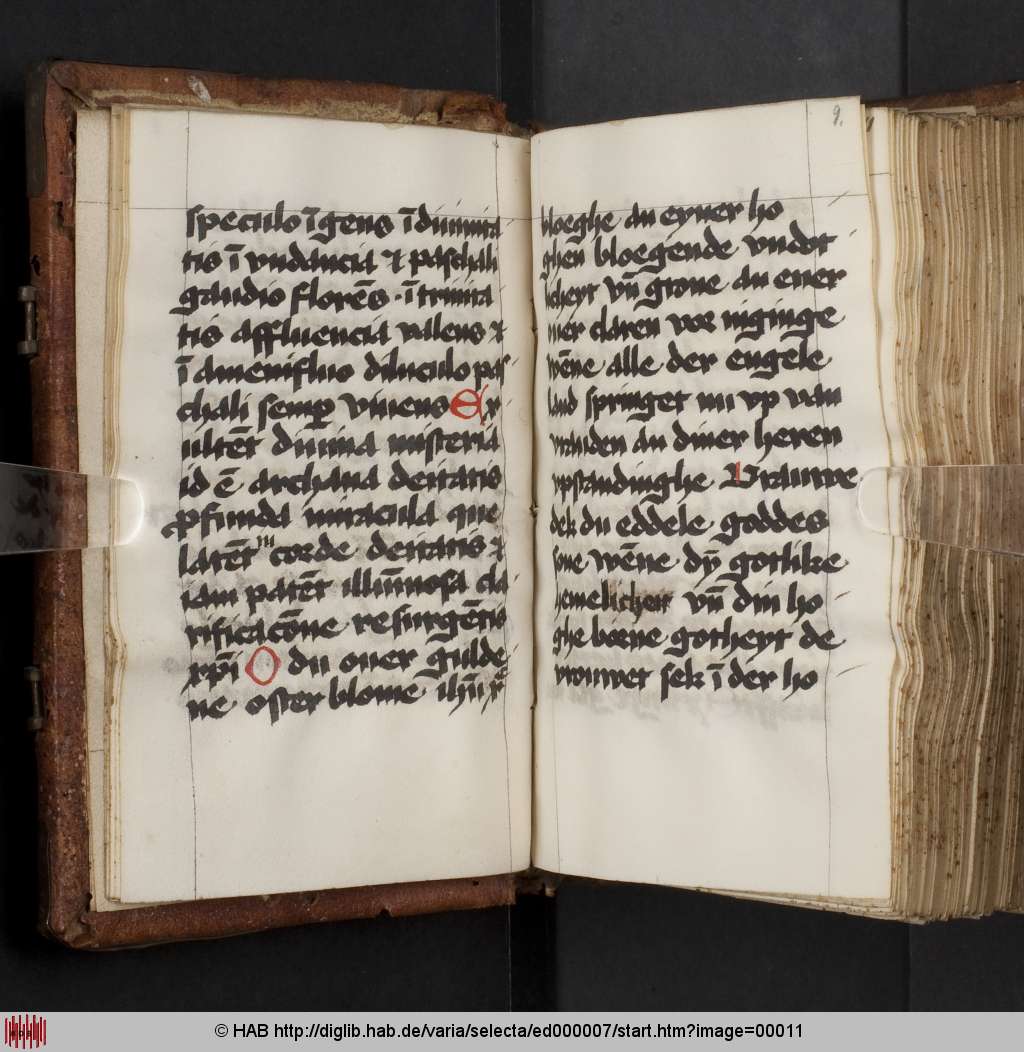 speculo ī gens ī diuinita
tis ī vndancia ⁊ paschali
gaudio florēs · ī trinita
tis affluencia valens ⁊
ī amenifluo diluculo pas
chali semꝑ viuens Ex
ultēt diuina misteria
id ē archana deitatis
ꝓfunda miracula que
latēt in corde deitatis ⁊
iam patēt illūinosa cla
rificacōne resurgētis
xp̄i O du ouer gulde
ne oster blome ihū x
9.
bloeghe an eyner ho
ghen bloegende vndot
licheyt vn̄ grone an ener
uer claren voe niginge
wēne alle der engele
land springet nu vp van
vrauden an diner heren
vpstandinghe Vrauwe
dek du eddele goddes
sone wēne dȳ gotlike
hemelicheit vn̄ din ho
ghe boene gotheyt de
vrouwet sek ī der ho
© HAB http://diglib.hab.de/varia/selecta/ed000007/start.htm?image=00011